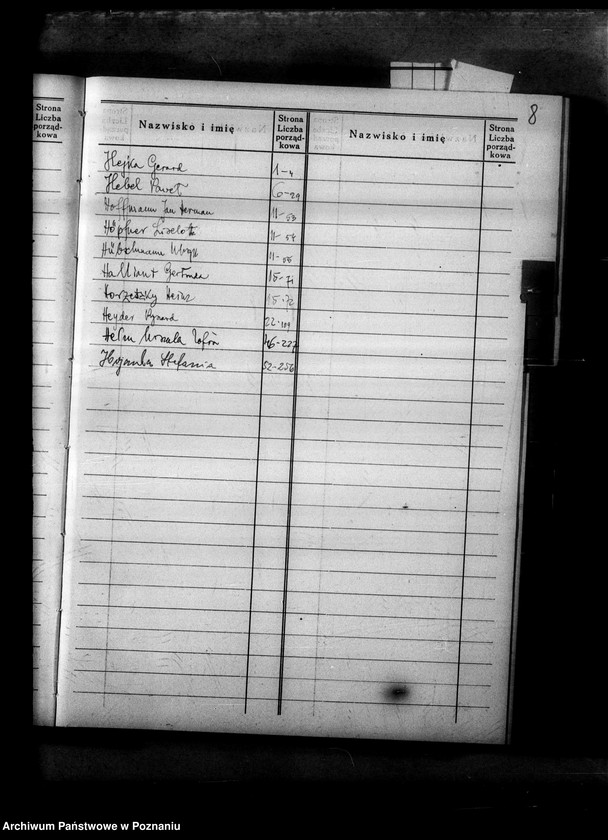 8
Strona
Liczba
porząd-
kowa
Nazwisko i imię
Strona
Liczba
porząd-
kowa
Nazwisko i imię
Strona
Liczba
porząd-
kowa
Hejka Gerard 1-4
Hebel Paweł 6-29
Hoffmann Jan Herman 11-53
Höpfner Liselotte 11-54
Hübschmann 11-55
Halliant Gertruda 15-71
Horzetzky Heinz 15-72
Heyder Ryszard 22-109
Urszula Zofia 46-227
Stefania 52-256
Archiwum Państwowe w Poznaniu